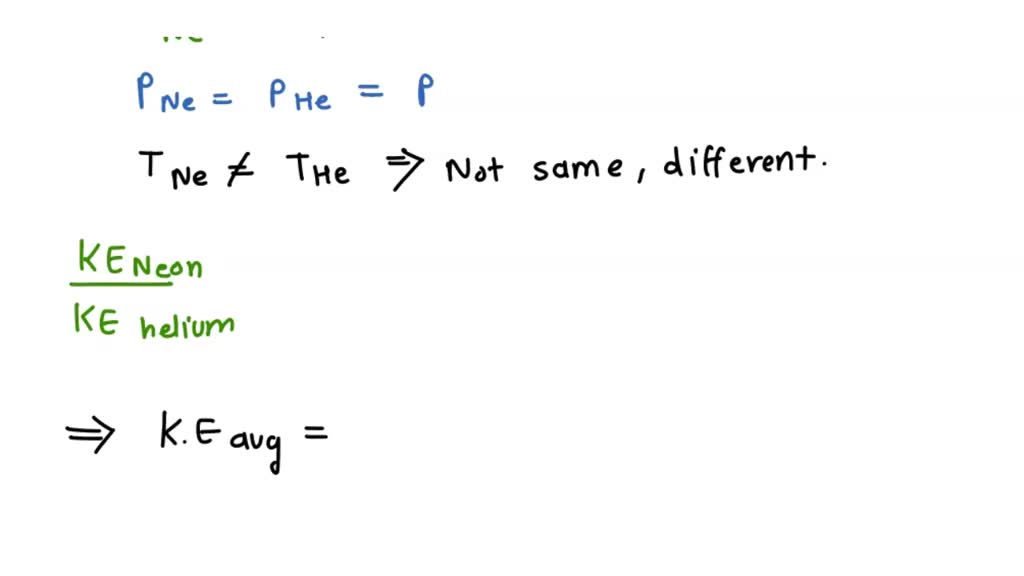 P Ne = P He = P
T Ne ≠ T He ⇒ Not same, different.
KE Neon
KE helium
⇒ K.E avg =